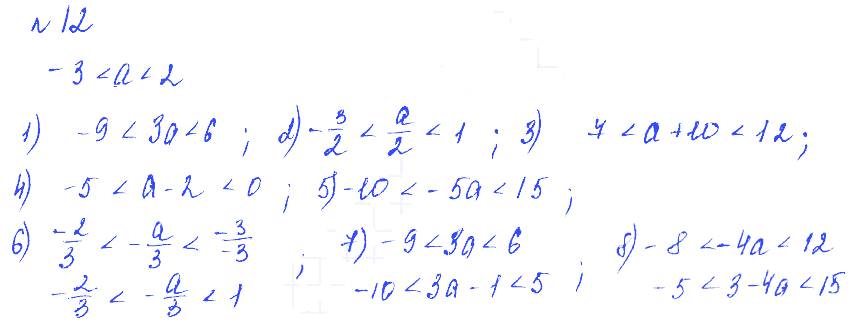 № 12
-3 < a < 2
1) -9 < 3a < 6 ; 2) -3/2 < a/2 < 1 ; 3) 7 < a + 10 < 12 ;
4) -5 < a - 2 < 0 ; 5) -10 < -5a < 15 ;
6) -2/3 < -a/3 < -3/-3 ; 7) -9 < 3a < 6 8) -8 < -4a < 12
-2/3 < -a/3 < 1 -10 < 3a - 1 < 5 ; -5 < 3 - 4a < 15